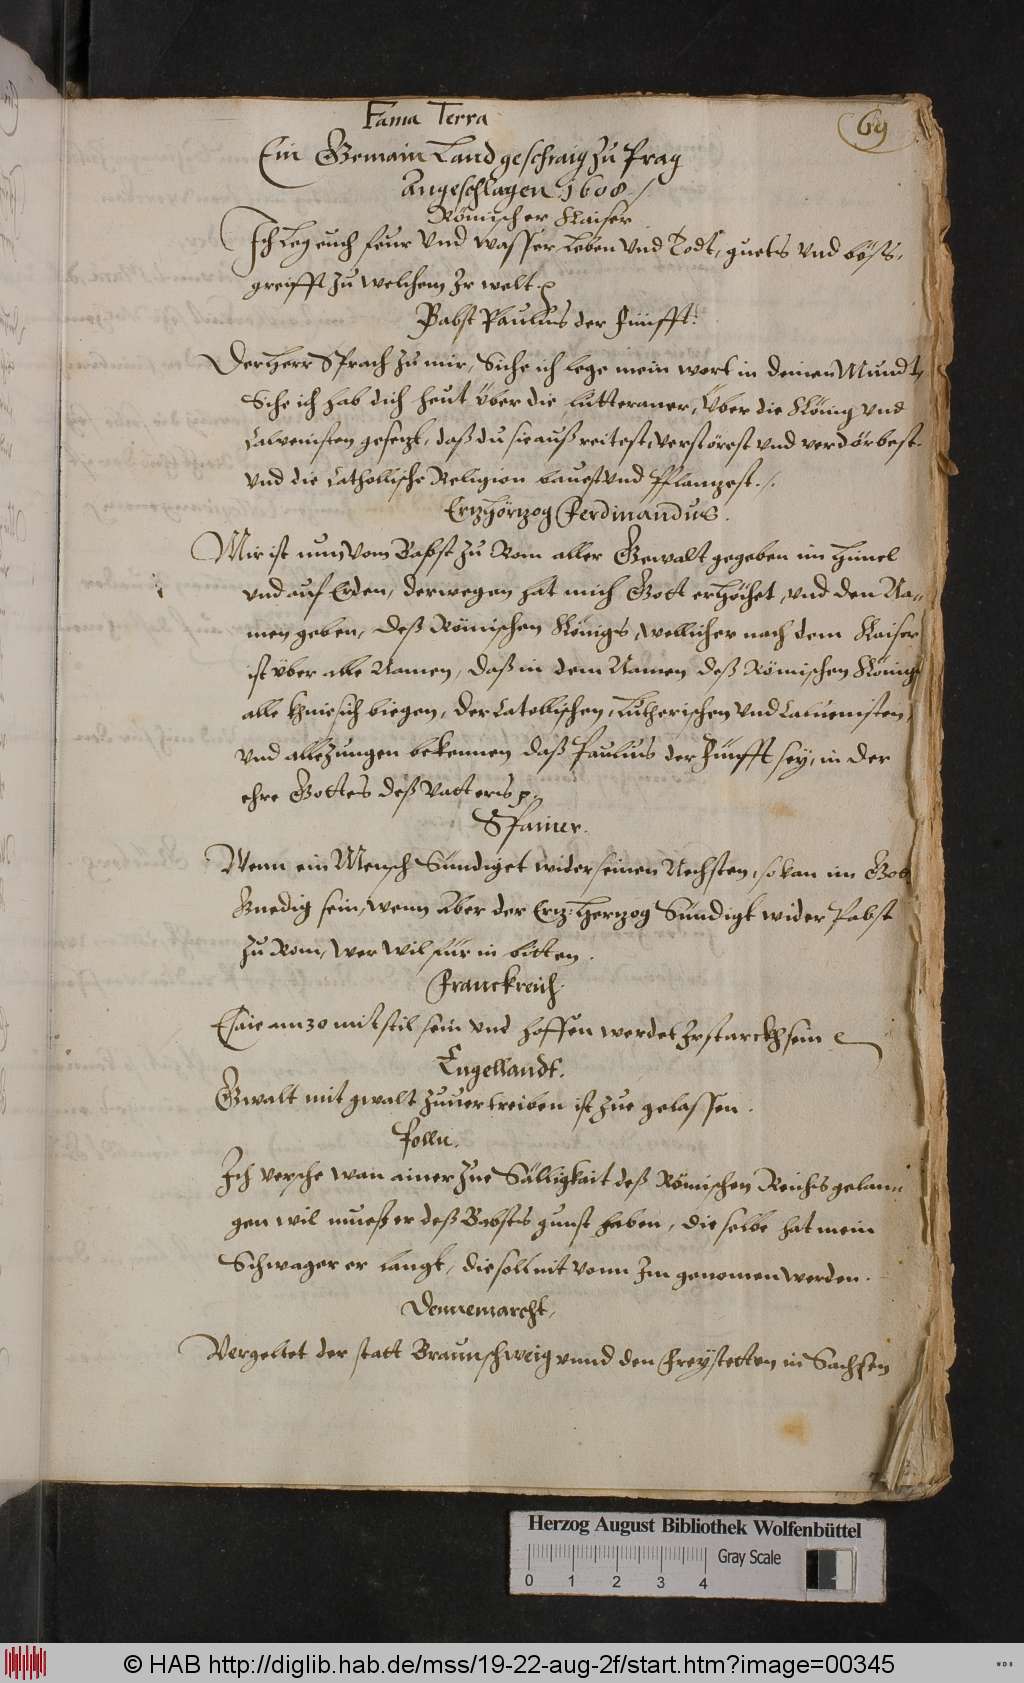 69
Fama Terra
Ein Gemain Landgeschraig zu Prag
Angeschlagen 1608./.
Römischer Kaiser
Ich leg euch feur und wasser, Leben und Todt, guets und böss,
greifft zu welchem Ir welt.
Babst Paulus der Fünfft:
Der Herr Sprach zu mir, Siche ich lege mein wort in deinen Mundt,
Siche ich hab dich heut über die lutteraner, über die König und
Calvenisten gesetzt, daß du sie auß reitest, verstörest und verdörbest.
und die Cathollische Religion bauest und Pflanzest./.
Ertzhörtzog Ferdinandus.
Mir ist nun vom Babst zu Rom aller Gewalt gegeben im Himel
und auf Erden, derwegen hat mich Gott erhöchet, und den Na-
men geben, deß Römischen Königs, wellicher nach dem Kaiser
ist über alle Namen, daß in dem Namen deß Römischen Königs
alle khnie sich biegen, der Catollischen, Lutherischen und Caluenisten,
und alle Zungen bekennen daß Paulus der Fünfft sey, in der
ehre Gottes deß Vatters
Spanier.
Wenn ein Mensch Sündiget wider seinen Nechsten, so kan im Got
Gnedig sein, wenn Aber der Ertz: Hertzog Sündigt wider Pabst
zu Rom, wer wil für in bitten.
Franckreich.
Esaie am 30 mit stil sein und hoffen werdet Ir starckh sein
Engellandt.
Gwalt mit gwalt zuuertreiben ist zue gelassen.
Polln.
Ich versche wan ainer zue Sälligkait deß Römischen Reichs gelan-
gen wil mueß er deß Babsts gunst haben, die selbe hat mein
Schwager er langt, die soll nit vonn Im genomen werden.
Dennemarcht,
Vergeltet der statt Braunschweig unnd den Freystetten in Sachsen
Herzog August Bibliothek Wolfenbüttel
Gray Scale
0 1 2 3 4
© HAB http://diglib.hab.de/mss/19-22-aug-2f/start.htm?image=00345